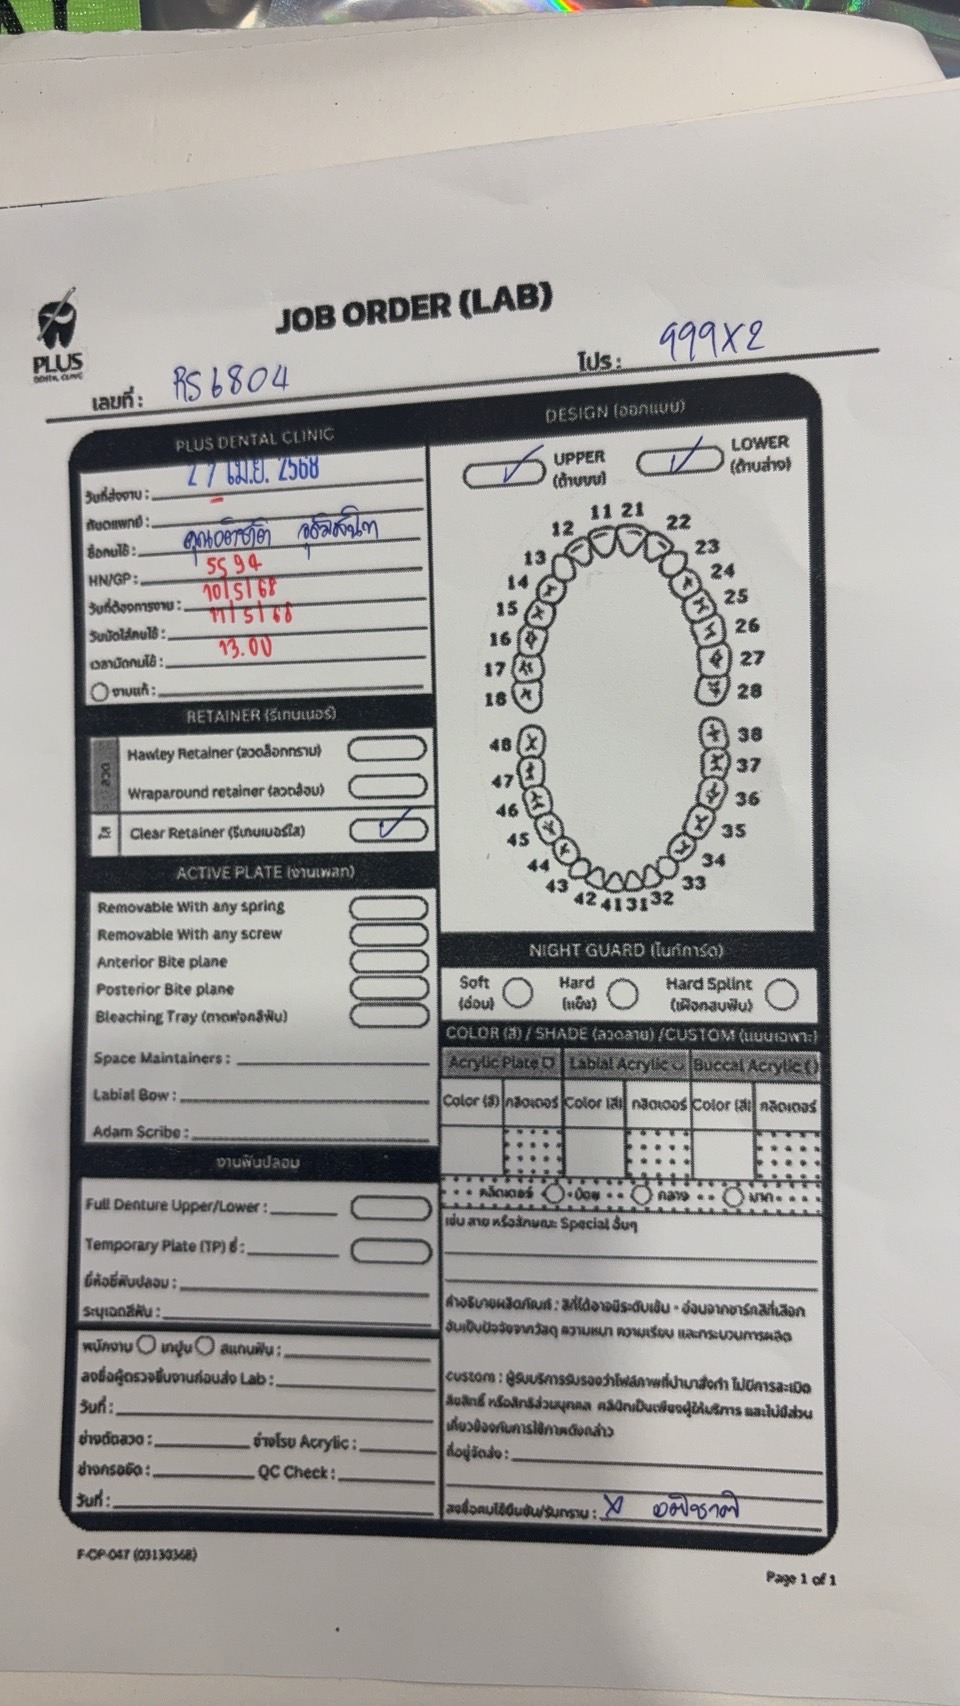 JOB ORDER (LAB)
PLUS
DENTAL CLINIC
เลขที่ : RS6804
โปร : 999X2
PLUS DENTAL CLINIC
วันที่ส่งงาน : 27 เม.ย. 2568
ทันตแพทย์ : -
ชื่อคนไข้ :
HN/GP : 5594
วันที่ต้องการงาน : 10/5/68
วันนัดใส่คนไข้ : 11/5/68
เวลานัดคนไข้ : 13.00
งานแก้ :
RETAINER (รีเทนเนอร์)
ลวด
Hawley Retainer (ลวดล็อกกราม)
Wraparound retainer (ลวดอ้อม)
ใส
Clear Retainer (รีเทนเนอร์ใส)
ACTIVE PLATE (งานเพลท)
Removable With any spring
Removable With any screw
Anterior Bite plane
Posterior Bite plane
Bleaching Tray (ถาดฟอกสีฟัน)
Space Maintainers :
Labial Bow :
Adam Scribe :
งานฟันปลอม
Full Denture Upper/Lower :
Temporary Plate (TP) ซี่ :
ยี่ห้อซี่ฟันปลอม :
ระบุเฉดสีฟัน :
พนักงาน เทปูน สแกนฟัน :
ลงชื่อผู้ตรวจชิ้นงานก่อนส่ง Lab :
วันที่ :
ช่างดัดลวด : ช่างโรย Acrylic :
ช่างกรอขัด : QC Check :
วันที่ :
DESIGN (ออกแบบ)
UPPER
(ด้านบน)
LOWER
(ด้านล่าง)
11 21
12 22
13 23
14 24
15 25
16 26
17 27
18 28
48 38
47 37
46 36
45 35
44 34
43 33
42 41 31 32
NIGHT GUARD (ไนท์การ์ด)
Soft
(อ่อน)
Hard
(แข็ง)
Hard Splint
(เฝือกสบฟัน)
COLOR (สี) / SHADE (ลวดลาย) /CUSTOM (แบบเฉพาะ)
Acrylic Plate Labial Acrylic Buccal Acrylic
Color (สี) กลิตเตอร์ Color (สี) กลิตเตอร์ Color (สี) กลิตเตอร์
กลิตเตอร์ น้อย กลาง มาก
เช่น ลาย หรือลักษณะ Special อื่นๆ
คำอธิบายผลิตภัณฑ์ : สีที่ได้อาจมีระดับเข้ม - อ่อนจากชาร์ตสีที่เลือก
อันเป็นปัจจัยจากวัสดุ ความหนา ความเรียบ และกระบวนการผลิต
custom : ผู้รับบริการรับรองว่าไฟล์ภาพที่นำมาสั่งทำ ไม่มีการละเมิด
ลิขสิทธิ์ หรือสิทธิส่วนบุคคล คลินิกเป็นเพียงผู้ให้บริการ และไม่มีส่วน
เกี่ยวข้องกับการใช้ภาพดังกล่าว
ที่อยู่จัดส่ง :
ลงชื่อคนไข้ยืนยัน/รับทราบ : X
F-OP-047 (03130368)
Page 1 of 1